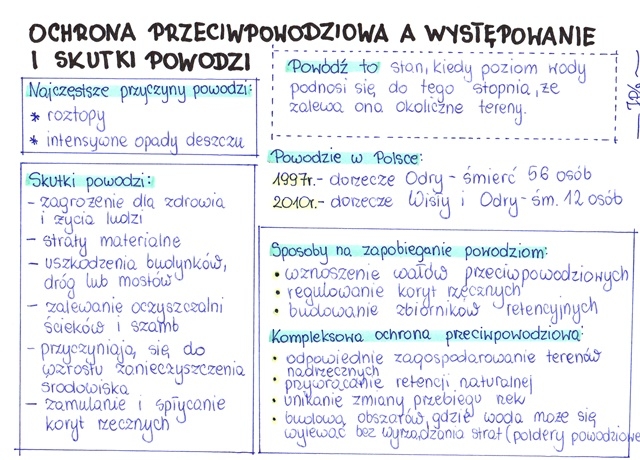 OCHRONA PRZECIWPOWODZIOWA A WYSTĘPOWANIE
I SKUTKI POWODZI
Najczęstsze przyczyny powodzi:
* roztopy
* intensywne opady deszczu
Powódź to stan, kiedy poziom wody
podnosi się do tego stopnia, że
zalewa ona okoliczne tereny.
Powodzie w Polsce:
1997r.- dorzecze Odry - śmierć 56 osób
2010r.- dorzecze Wisły i Odry - śm. 12 osób
Skutki powodzi:
- zagrożenie dla zdrowia
i życia ludzi
- straty materialne
- uszkodzenia budynków,
dróg lub mostów
- zalewanie oczyszczalni
ścieków i szamb
- przyczyniają się do
wzrostu zanieczyszczenia
środowiska
- zamulanie i spłycanie
koryt rzecznych
Sposoby na zapobieganie powodziom:
• wznoszenie wałów przeciwpowodziowych
• regulowanie koryt rzecznych
• budowanie zbiorników retencyjnych
Kompleksowa ochrona przeciwpowodziowa:
• odpowiednie zagospodarowanie terenów
nadrzecznych
• przywracanie retencji naturalnej
• unikanie zmiany przebiegu rzek
• budowa obszarów, gdzie woda może się
wylewać bez wyrządzania strat (poldery powodziowe